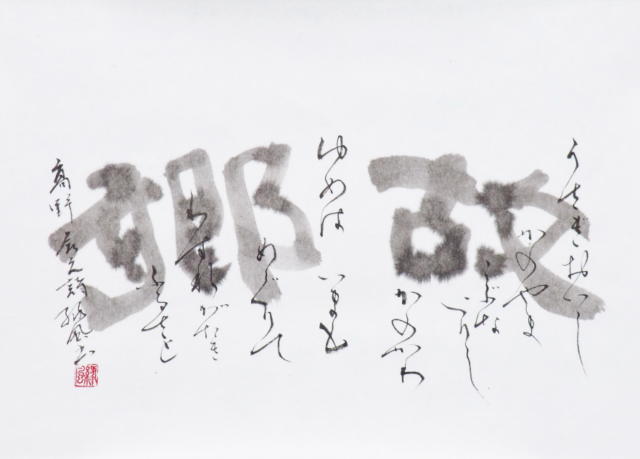 故郷
うさぎおいし
かのやま
こぶな
つりし
かのかわ
ゆめは
いまも
めぐりて
わすれがたき
ふるさと
高野辰之詩